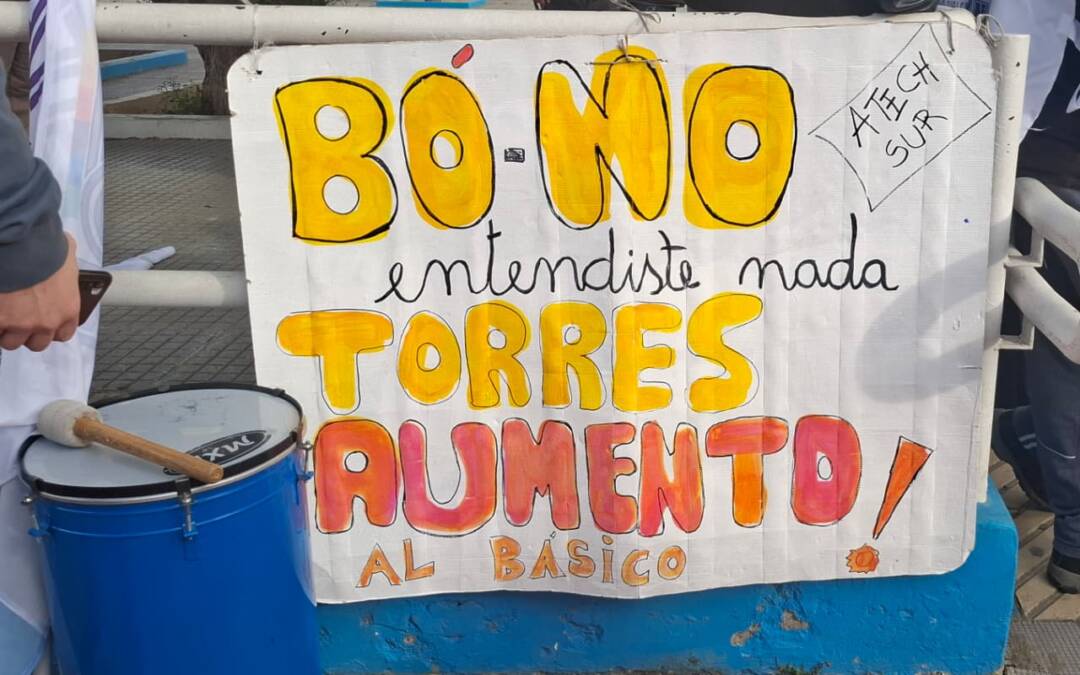 BÓ-NO
ATECH
SUR
entendiste nada
TORRES
AUMENTO!
AL BÁSICO
MXP